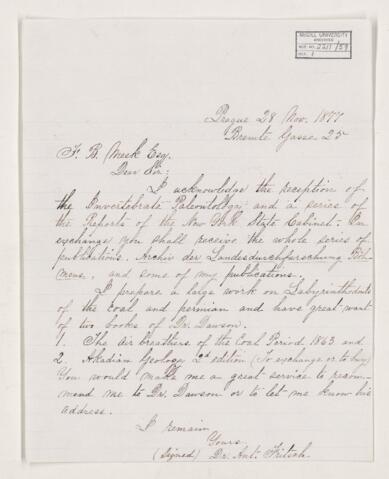 McGILL UNIVERSITY
ARCHIVES
ACC. NO. 2211/59
REF. 1
Prague 28 Nov. 1877
Brente Gasse 25
F. B. Meek Esq.
Dear Sir:
I acknowledge the reception of
the Invertebrate Paleontology and a series of
the Reports of the New York State Cabinet. In
exchange you shall receive the whole series of
publications. Archiv der Landesdurchforschung Böh
mens, and some of my publications.
I prepare a large work on Labyrinthodonts
of the coal and permian and have great want
of two books of Dr. Dawson.
1. The Air breathers of the Coal Period 1863 and
2. Akadian Geology 2d edition (To exchange or to buy)
You would make me an great service to recom-
mend me to Dr. Dawson or to let me know his
address.
I remain
Yours
(Signed) Dr. Ant. Fritsch.